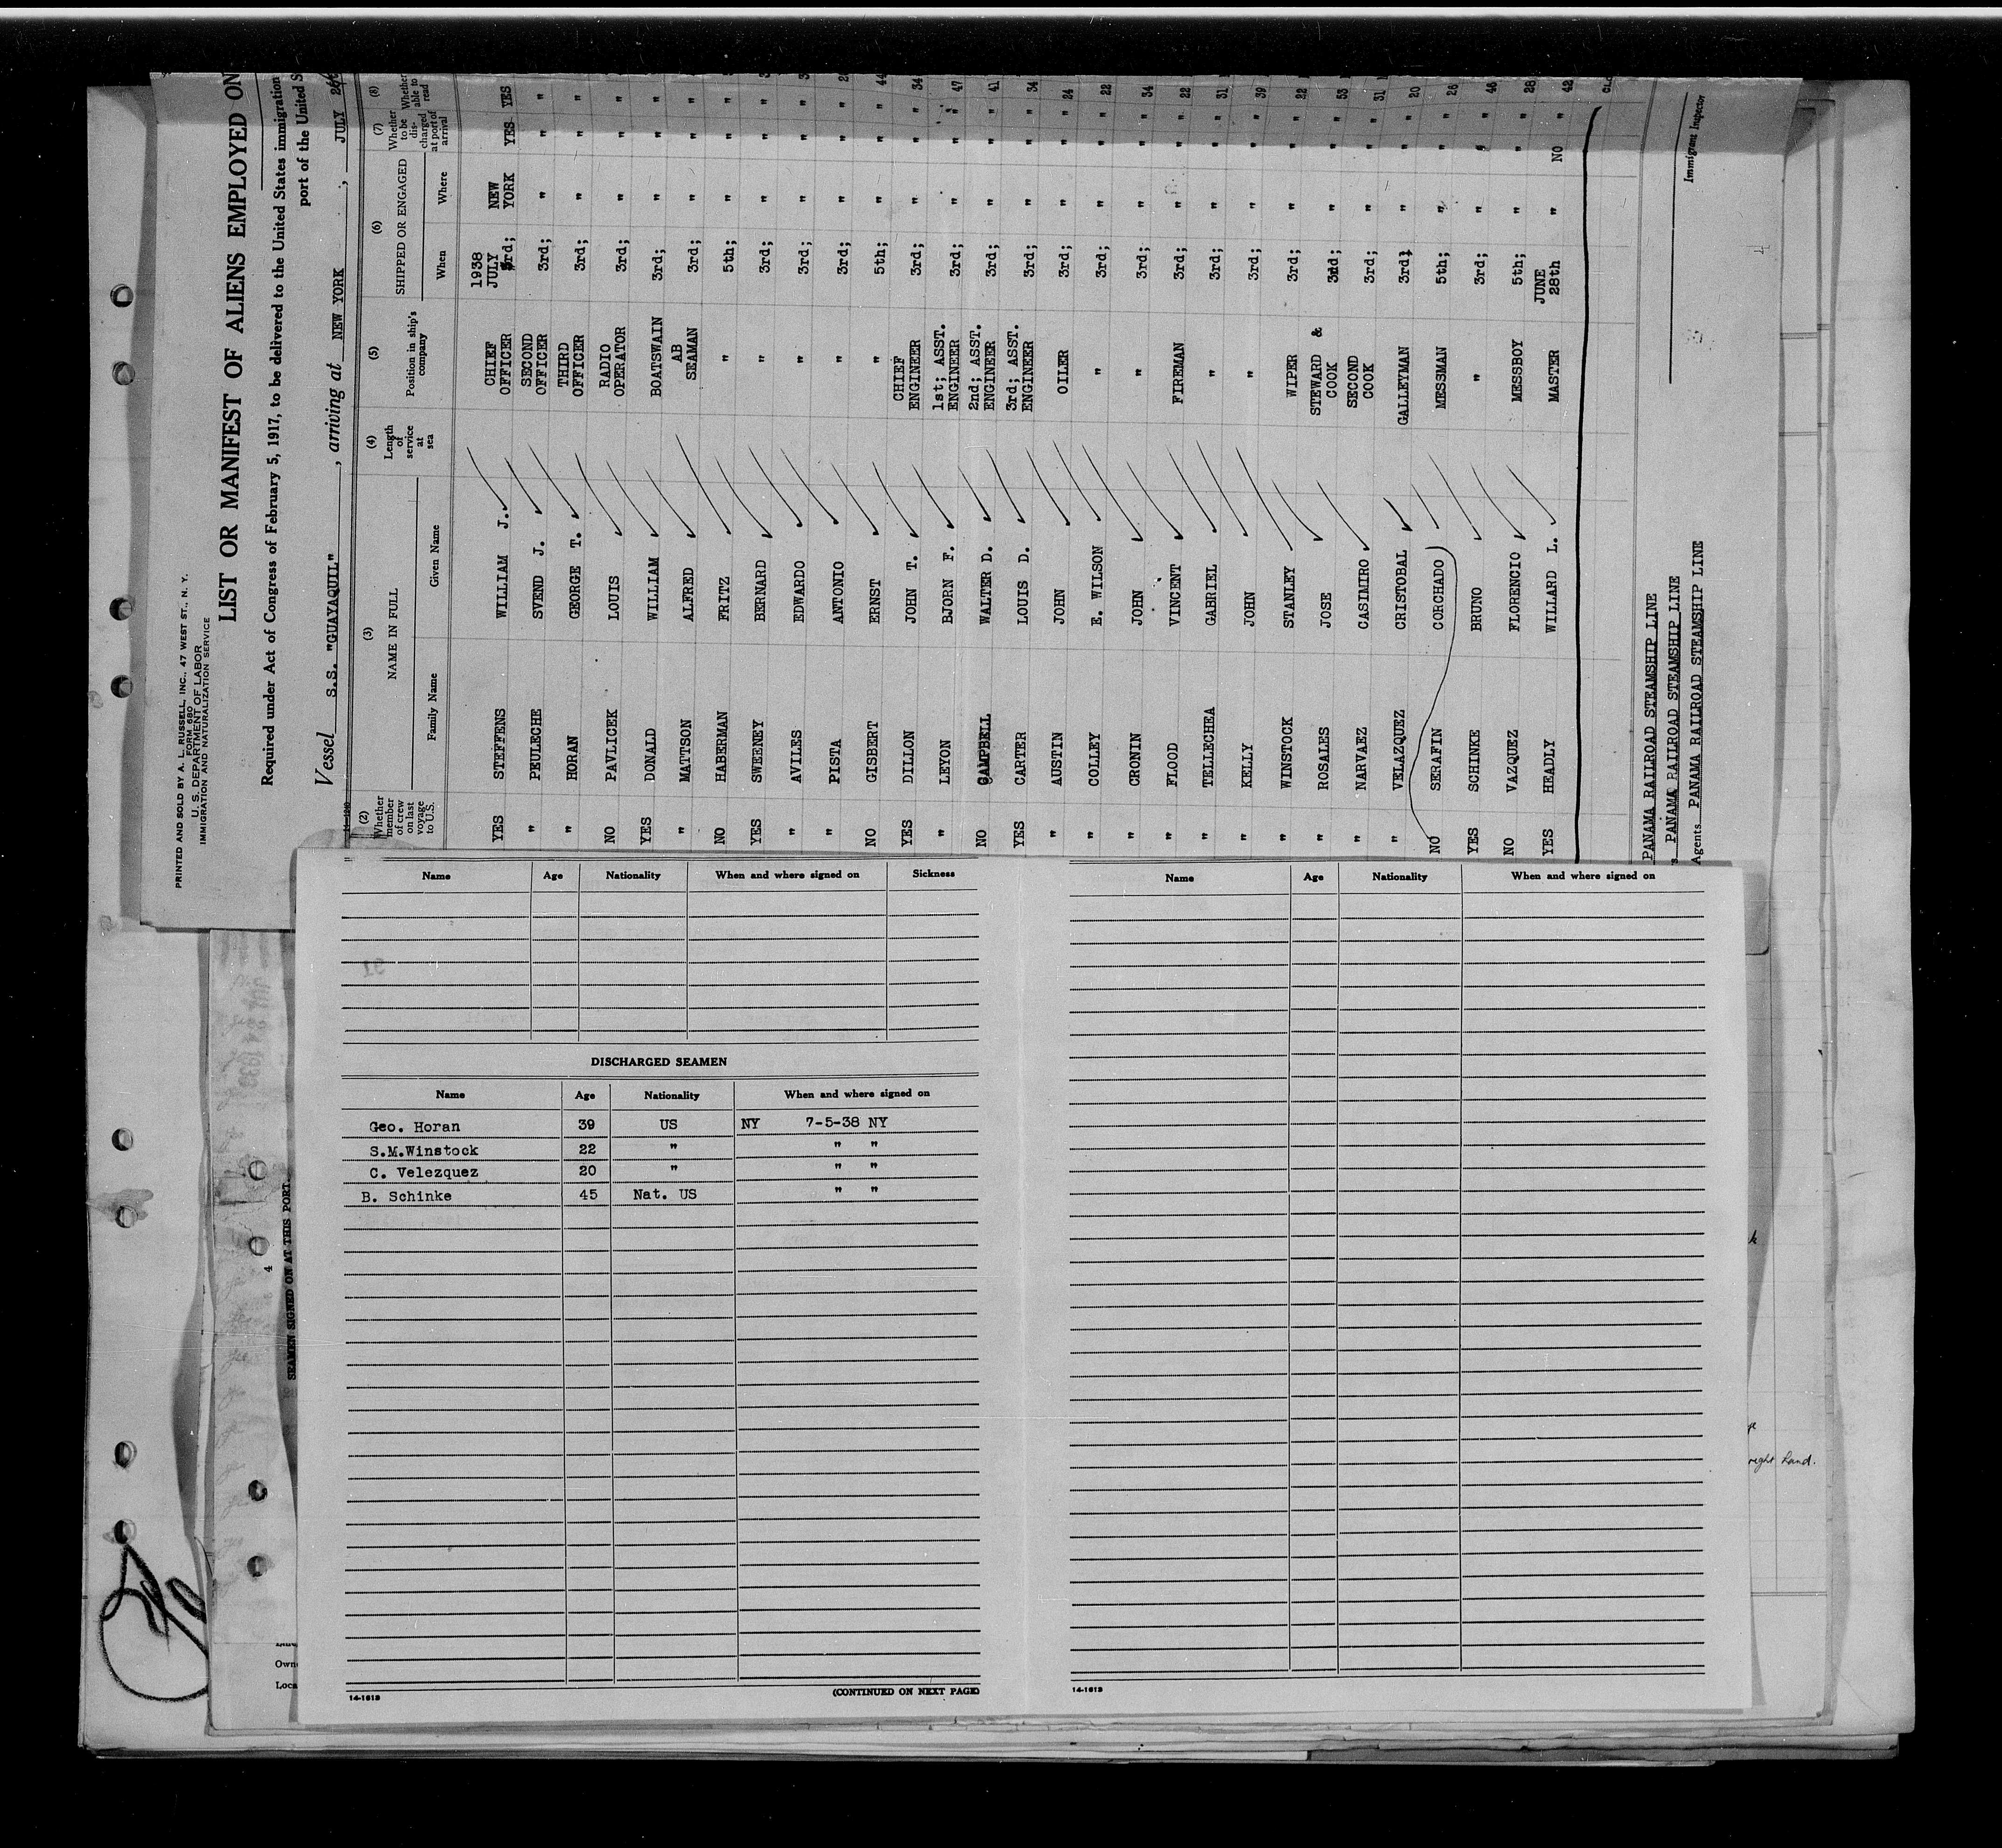 PRINTED AND SOLD BY A. L. RUSSELL, INC., 47 WEST ST., N. Y.
FORM 680
U. S. DEPARTMENT OF LABOR
IMMIGRATION AND NATURALIZATION SERVICE
LIST OR MANIFEST OF ALIENS EMPLOYED ON
Required under Act of Congress of February 5, 1917, to be delivered to the United States immigration
port of the United S
Vessel S.S. "GUAYAQUIL", arriving at NEW YORK, JULY
(2) Whether member of crew on last voyage to U.S. (3) NAME IN FULL Family Name Given Name (4) Length of service at sea (5) Position in ship's company (6) SHIPPED OR ENGAGED When Where (7) Whether to be discharged at port of arrival (8) Whether able to read
YES STEFFENS WILLIAM J. CHIEF OFFICER 1938 JULY 3rd; NEW YORK YES YES
" PEULECHE SVEND J. SECOND OFFICER 3rd; " " "
" HORAN GEORGE T. THIRD OFFICER 3rd; " " "
NO PAVLICEK LOUIS RADIO OPERATOR 3rd; " " "
YES DONALD WILLIAM BOATSWAIN 3rd; " " "
" MATTSON ALFRED AB SEAMAN 3rd; " " "
NO HABERMAN FRITZ " 5th; " " "
YES SWEENEY BERNARD " 3rd; " " "
" AVILES EDWARDO " 3rd; " " "
" PISTA ANTONIO " 3rd; " " "
NO GISBERT ERNST " 5th; " " " 44
YES DILLON JOHN T. CHIEF ENGINEER 3rd; " " " 34
" LEYON BJORN F. 1st; ASST. ENGINEER 3rd; " " " 47
NO CAMPBELL WALTER D. 2nd; ASST. ENGINEER 3rd; " " " 41
YES CARTER LOUIS D. 3rd; ASST. ENGINEER 3rd; " " " 34
" AUSTIN JOHN OILER 3rd; " " " 24
" COLLEY E. WILSON " 3rd; " " " 22
" CRONIN JOHN " 3rd; " " " 34
" FLOOD VINCENT FIREMAN 3rd; " " " 22
" TELLECHEA GABRIEL " 3rd; " " " 31
" KELLY JOHN " 3rd; " " " 39
" WINSTOCK STANLEY WIPER 3rd; " " " 22
" ROSALES JOSE STEWARD & COOK 3rd; " " " 53
" NARVAEZ CASIMIRO SECOND COOK 3rd; " " " 31
" VELAZQUEZ CRISTOBAL GALLEYMAN 3rd; " " " 20
NO SERAFIN CORCHADO MESSMAN 5th; " " " 26
YES SCHINKE BRUNO " 3rd; " " " 46
NO VAZQUEZ FLORENCIO MESSBOY 5th; " " " 28
YES HEADLY WILLARD L. MASTER JUNE 28th " NO " 42
PANAMA RAILROAD STEAMSHIP LINE
PANAMA RAILROAD STEAMSHIP LINE
Agents PANAMA RAILROAD STEAMSHIP LINE
Immigrant Inspector
Name Age Nationality When and where signed on Sickness
DISCHARGED SEAMEN
Name Age Nationality When and where signed on
Geo. Horan 39 US NY 7-5-38 NY
S.M.Winstock 22 " " "
C. Velezquez 20 " " "
B. Schinke 45 Nat. US " "
14-1613 (CONTINUED ON NEXT PAGE)
Name Age Nationality When and where signed on
14-1613
4
SEAMEN SIGNED ON AT THIS PORT.
Own
Loca
right hand.